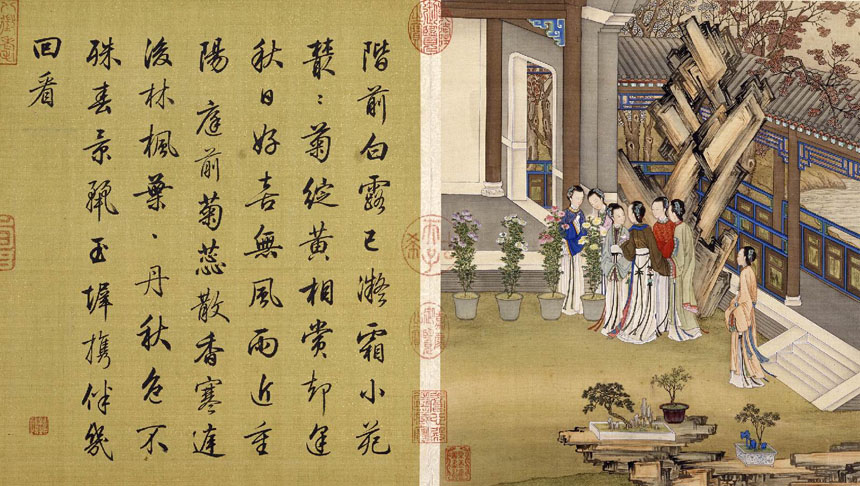 階前白露已凝霜小苑
叢〻菊綻黃相賞却逢
秋日好喜無風雨近重
陽 庭前菊蕊散香寒連
後林楓葉〻丹秋色不
殊春景麗玉墀攜伴幾
回看